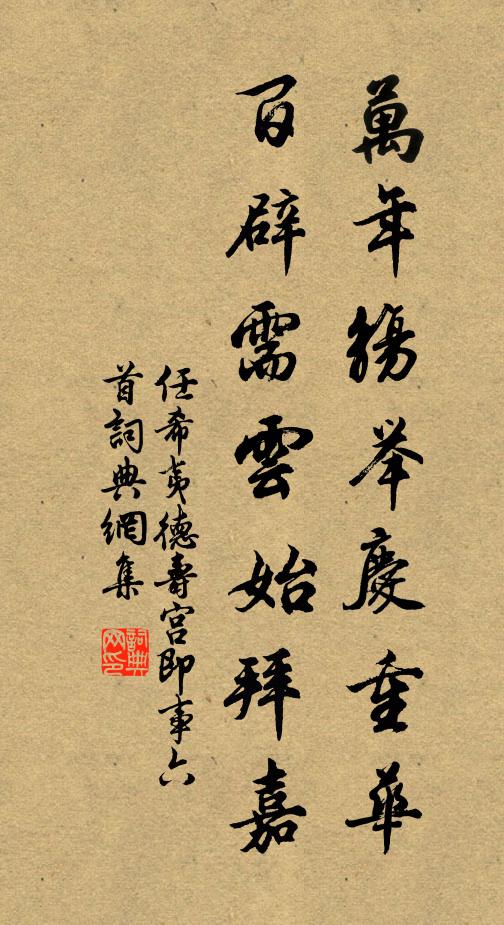 萬年觴举慶重華
百辟需雲始拜嘉
任希夷德壽宮即事六
首詞典網集
詞典
网印